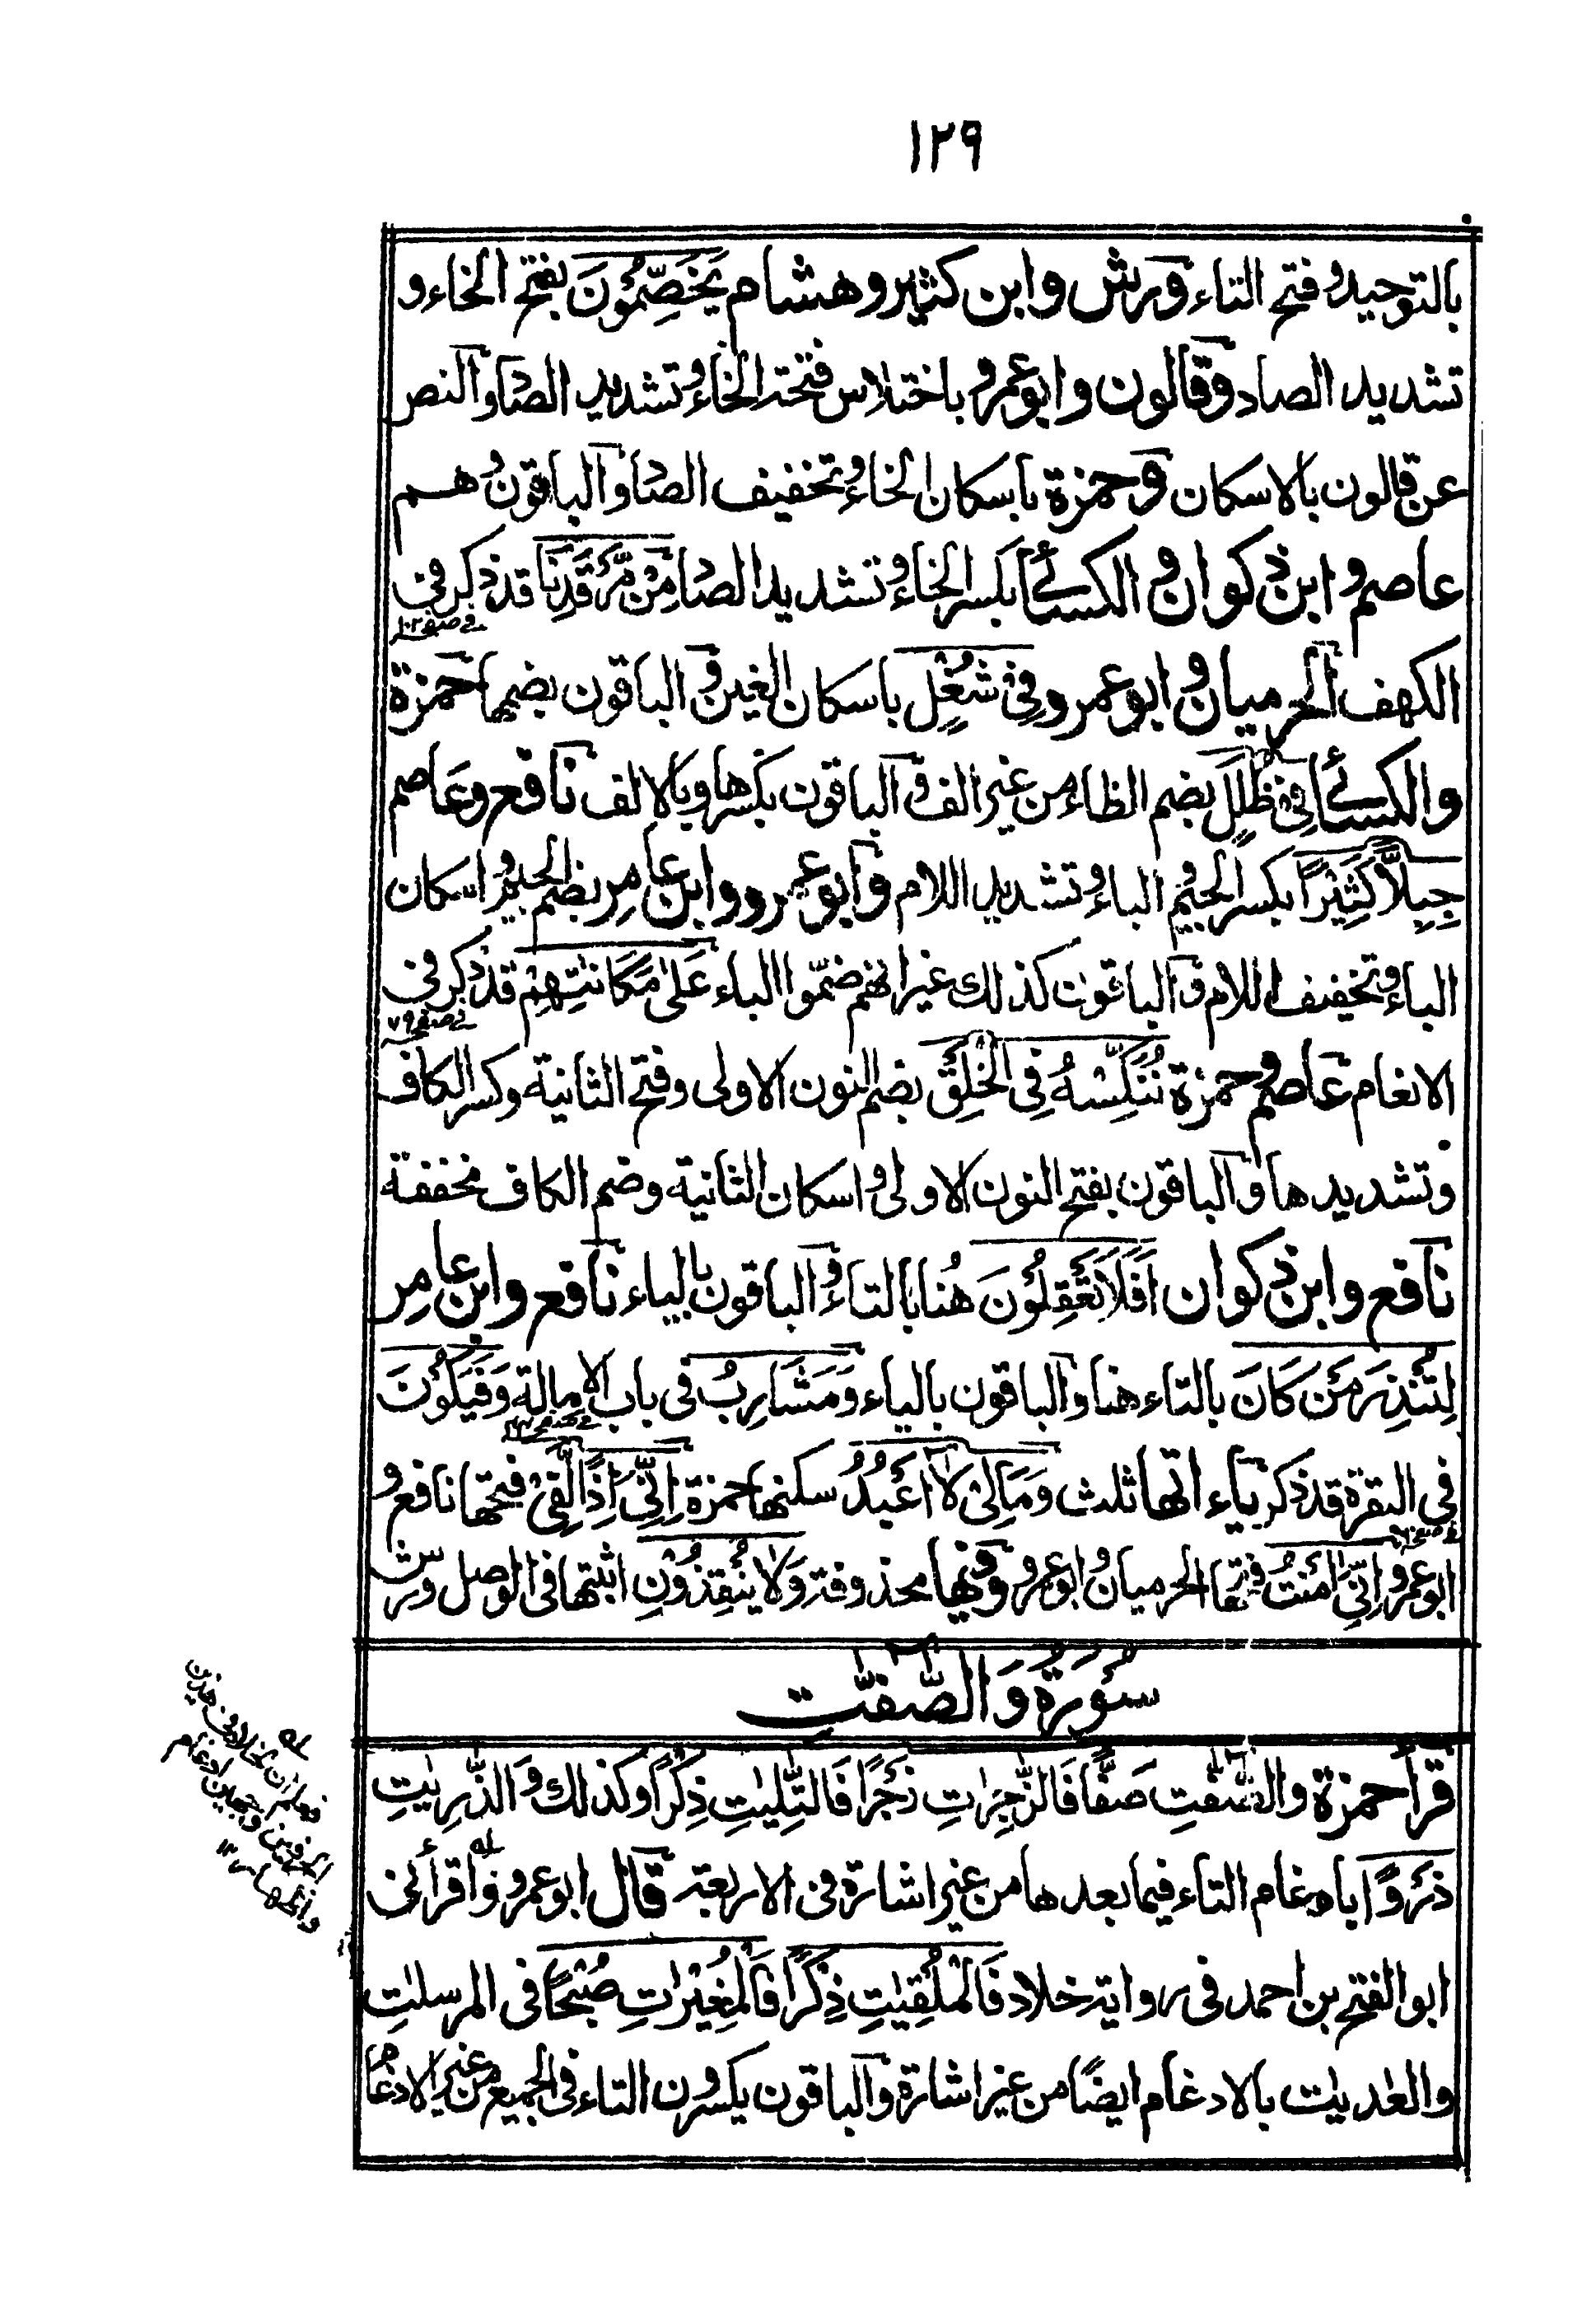 ١٢٩
بالتوحيد وفتح التاء ورش وابن كثير وهشام يَخَصِّمُوْنَ بفتح الخاء و
تشديد الصاد وقالون وابو عمرو باختلاس فتحة الخاء وتشديد الصاد والنص
عن قالون بالاسكان وحمزة باسكان الخاء وتخفيف الصاد والباقون وهم
عاصم وابن ذكوان والكسائى بكسر الخاء وتشديد الصاد مِنْ مَّرْقَدِنَا قد ذكر فى
فى صفحه ١٠٢
الكهف الحرميان وابو عمرو فِىْ شُغْلٍ باسكان الغين والباقون بضمها حمزة
والكسائى فِىْ ظُلَلٍ بضم الظاء من غير الف والباقون بكسرها وبالالف نافع وعاصم
جِبِلًّا كَثِيْرًا بكسر الجيم والباء وتشديد اللام وابو عمرو وابن عامر بضم الجيم واسكان
الباء وتخفيف اللام والباقون كذلك غير انهم ضمّوا الباء عَلٰى مَكَانٰتِهِمْ قد ذكر فى
فى صفحه ٧٩
الانعام عاصم وحمزة نُنَكِّسْهُ فِى الْخَلْقِ بضم النون الاولى وفتح الثانية وكسر الكاف
وتشديدها والباقون بفتح النون الاولى واسكان الثانية وضم الكاف مخففة
نافع وابن ذكوان اَفَلَا تَعْقِلُوْنَ هُنا بالتاء والباقون بالياء نافع وابن عامر
لِتُنْذِرَ مَنْ كَانَ بالتاء هنا والباقون بالياء وَمَشَارِبُ فى باب الامالة وَفَيَكُوْنَ
فى البقرة قد ذكر ياء اتها ثلث وَمَالِىَ لَا اَعْبُدُ سكنها حمزة اِنِّىْ اِذًا لَّفِىْ فتحها نافع و
ابو عمرو اِنِّىْ اٰمَنْتُ فتحها الحرميان وابو عمرو وفيها محذوفة وَلَا يُنْقِذُوْنِ اثبتها فى الوصل ورش
سُوْرَةُ وَالصّٰٓفّٰتِ
قرأ حمزة والصّٰٓفّٰتِ صَفًّا فَالزّٰجِرٰتِ زَجْرًا فَالتّٰلِيٰتِ ذِكْرًا وكذلك وَالذّٰرِيٰتِ
ذَرْوًا بادغام التاء فيما بعدها من غير اشارة فى الاربعة قال ابو عمرو واقرأنى
ابو الفتح بن احمد فى رواية خلاد فَالْمُلْقِيٰتِ ذِكْرًا فَالْمُغِيْرٰتِ صُبْحًا فى المرسلٰت
والعٰديٰت بالادغام ايضًا من غير اشارة والباقون يكسرون التاء فى الجميع من غير الادغام
له
فعلم ان لخلاد فى هذين
الحرفين وجهين ادغام
واظهار ١٢